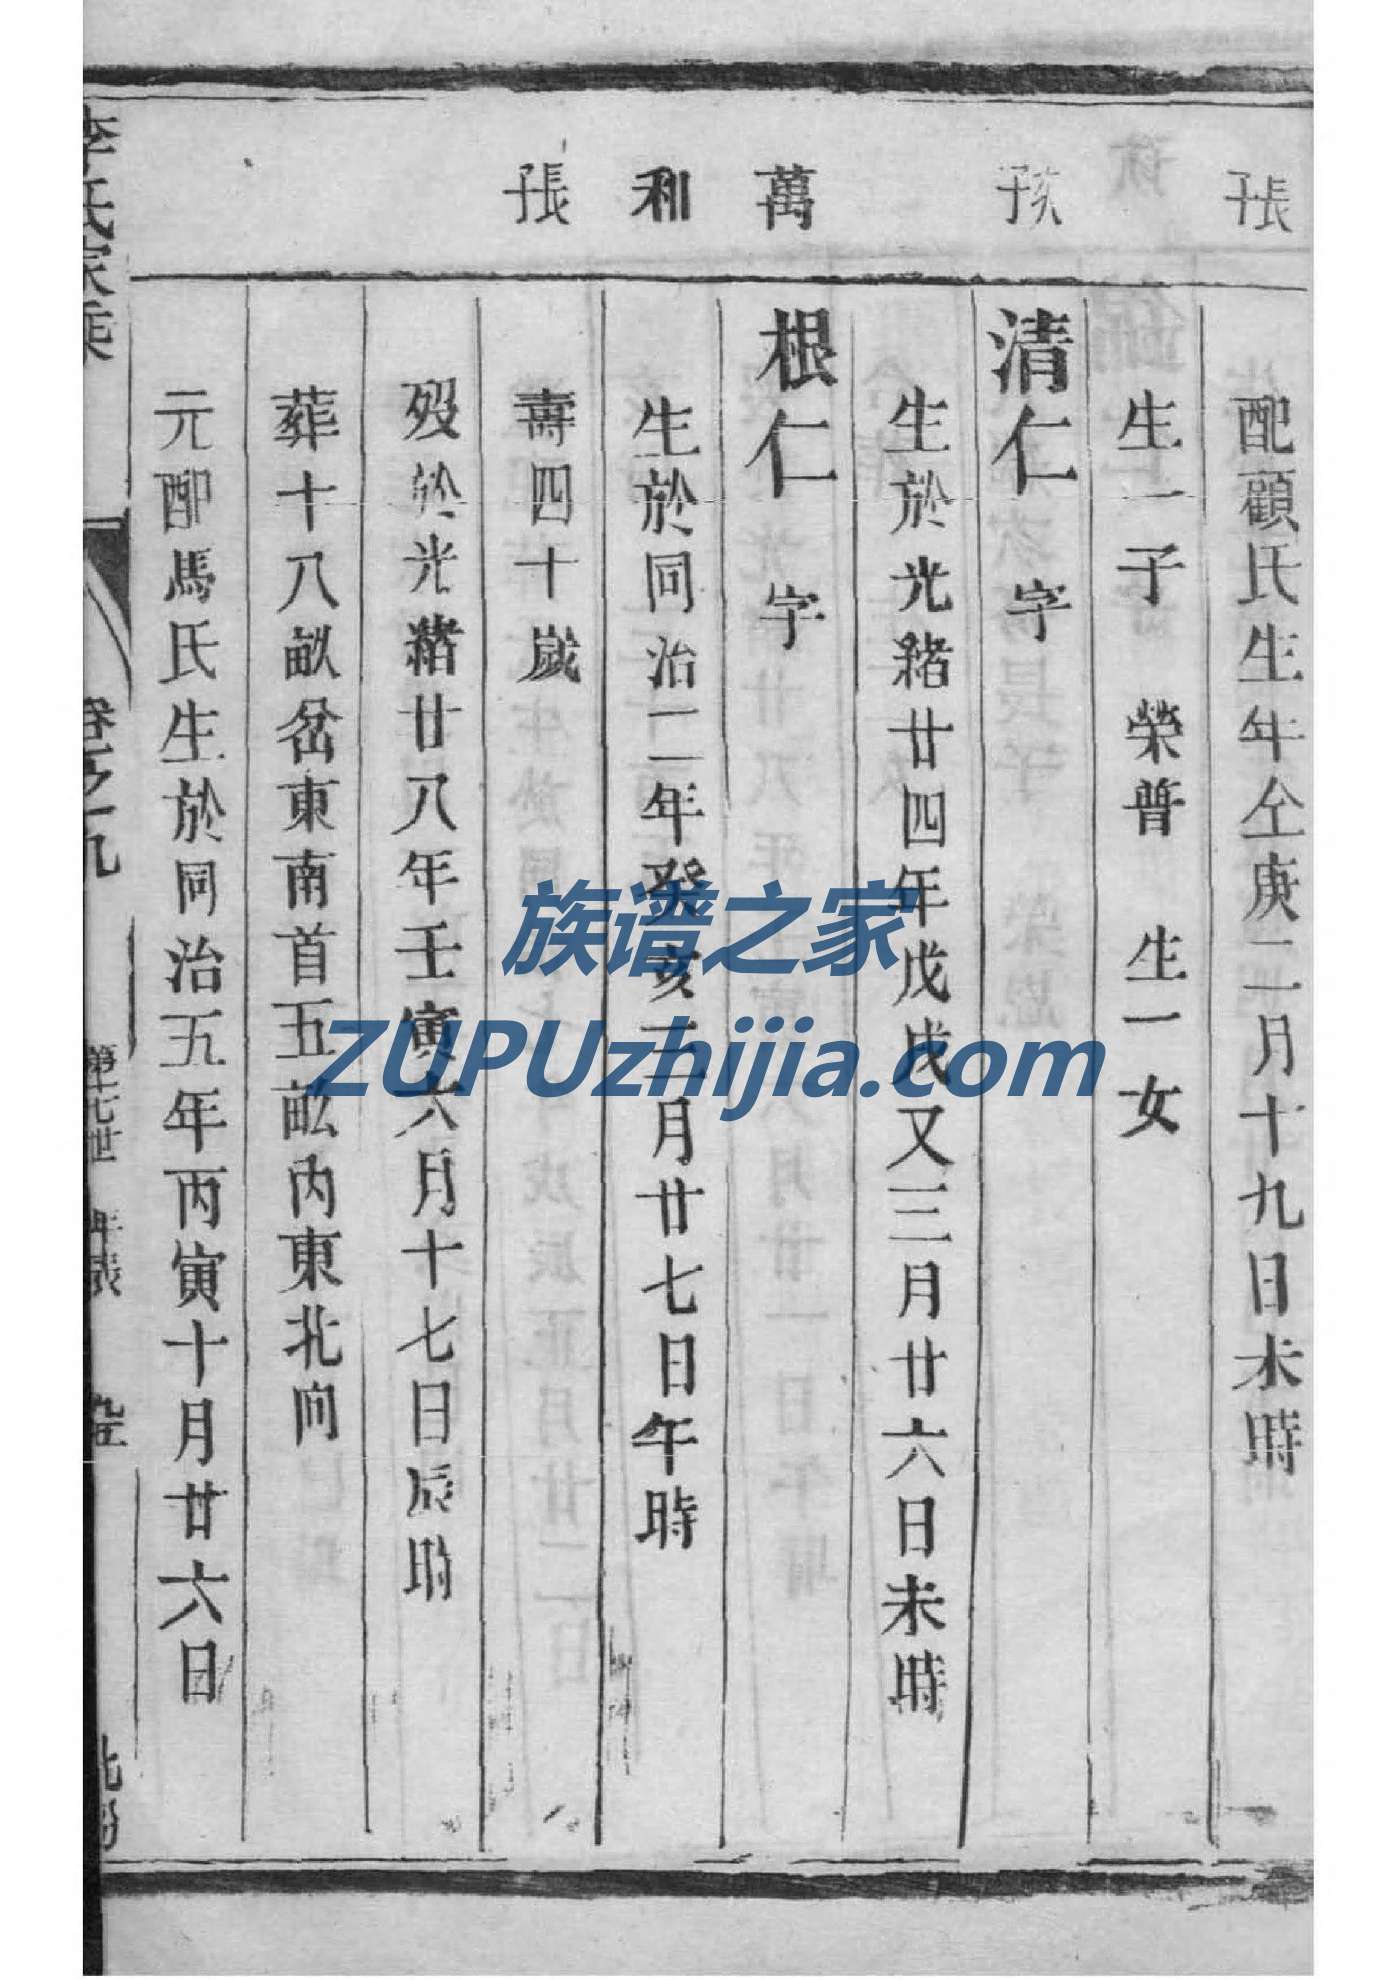 張
孫
萬
和
張
配顧氏生年仝庚二月十九日未時
生一子 榮普 生一女
清仁 字
生於光緒廿四年戊戌又三月廿六日未時
根仁 字
生於同治二年癸亥三月廿七日午時
壽四十歲
歿於光緒廿八年壬寅六月十七日辰時
葬十八畝岔東南首五畝內東北向
元配馬氏生於同治五年丙寅十月廿六日
李氏家乘
卷之九
第七世 年歲
族谱之家
ZUPUzhijia.com